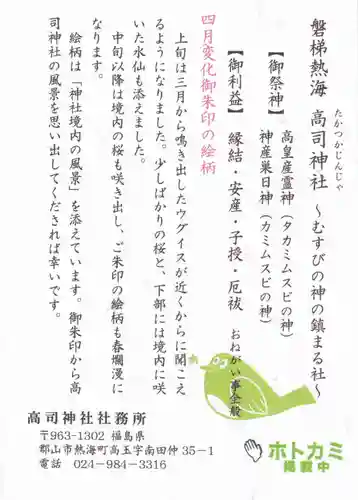 磐梯熱海 高司神社 ～むすびの神の鎮まる社～
たかつかじんじゃ
【御祭神】 高皇産霊神（タカミムスビの神）
神産巣日神（カミムスビの神）
【御利益】 縁結・安産・子授・厄祓 おねがい事全般
四月変化御朱印の絵柄
上旬は三月から鳴き出したウグイスが近くからに聞こえ
るようになりました。少しばかりの桜と、下部には境内に咲
いた水仙も添えました。
中旬以降は境内の桜も咲き出し、ご朱印の絵柄も春爛漫に
なります。
絵柄は「神社境内の風景」を添えています。御朱印から高
司神社の風景を思い出してくだされば幸いです。
高司神社社務所
〒963-1302 福島県
郡山市熱海町高玉字南田仲 35－1
電話 024－984－3316
ホトカミ
掲載中